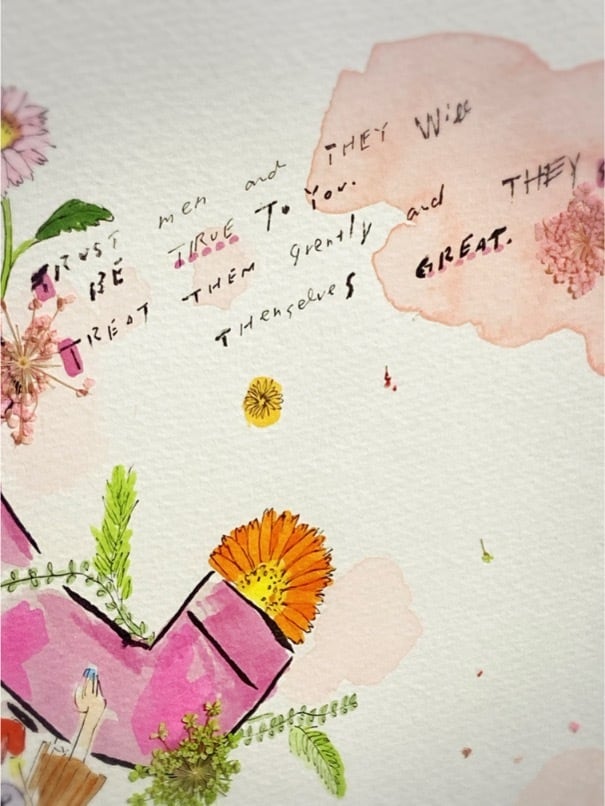 TRUST men and THEY Will
BE TRUE To You.
TREAT THEM greatly and THEY
THemselveS GREAT.